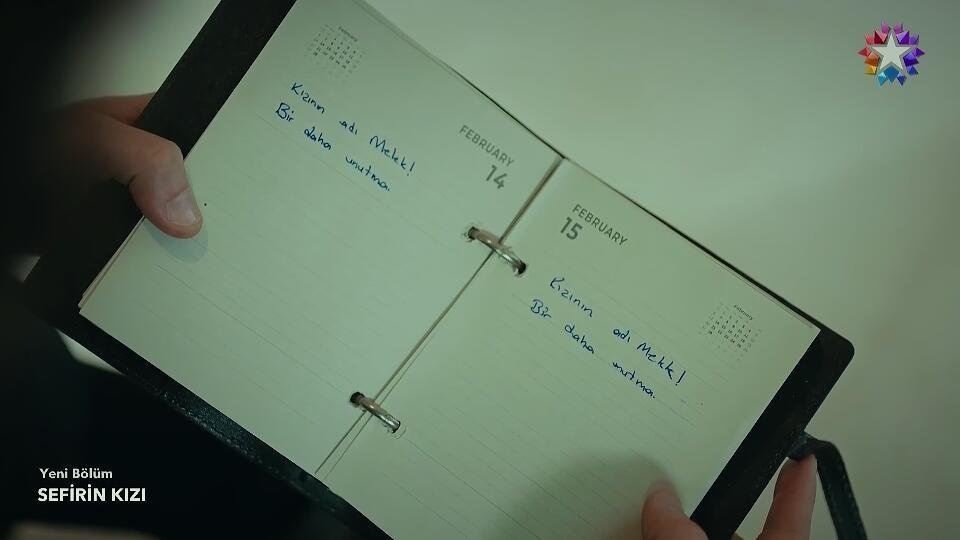 February
Kızının adı Melek!
Bir daha unutma.
FEBRUARY
14
FEBRUARY
15
February
Kızının adı Melek!
Bir daha unutma.
Yeni Bölüm
SEFİRİN KIZI